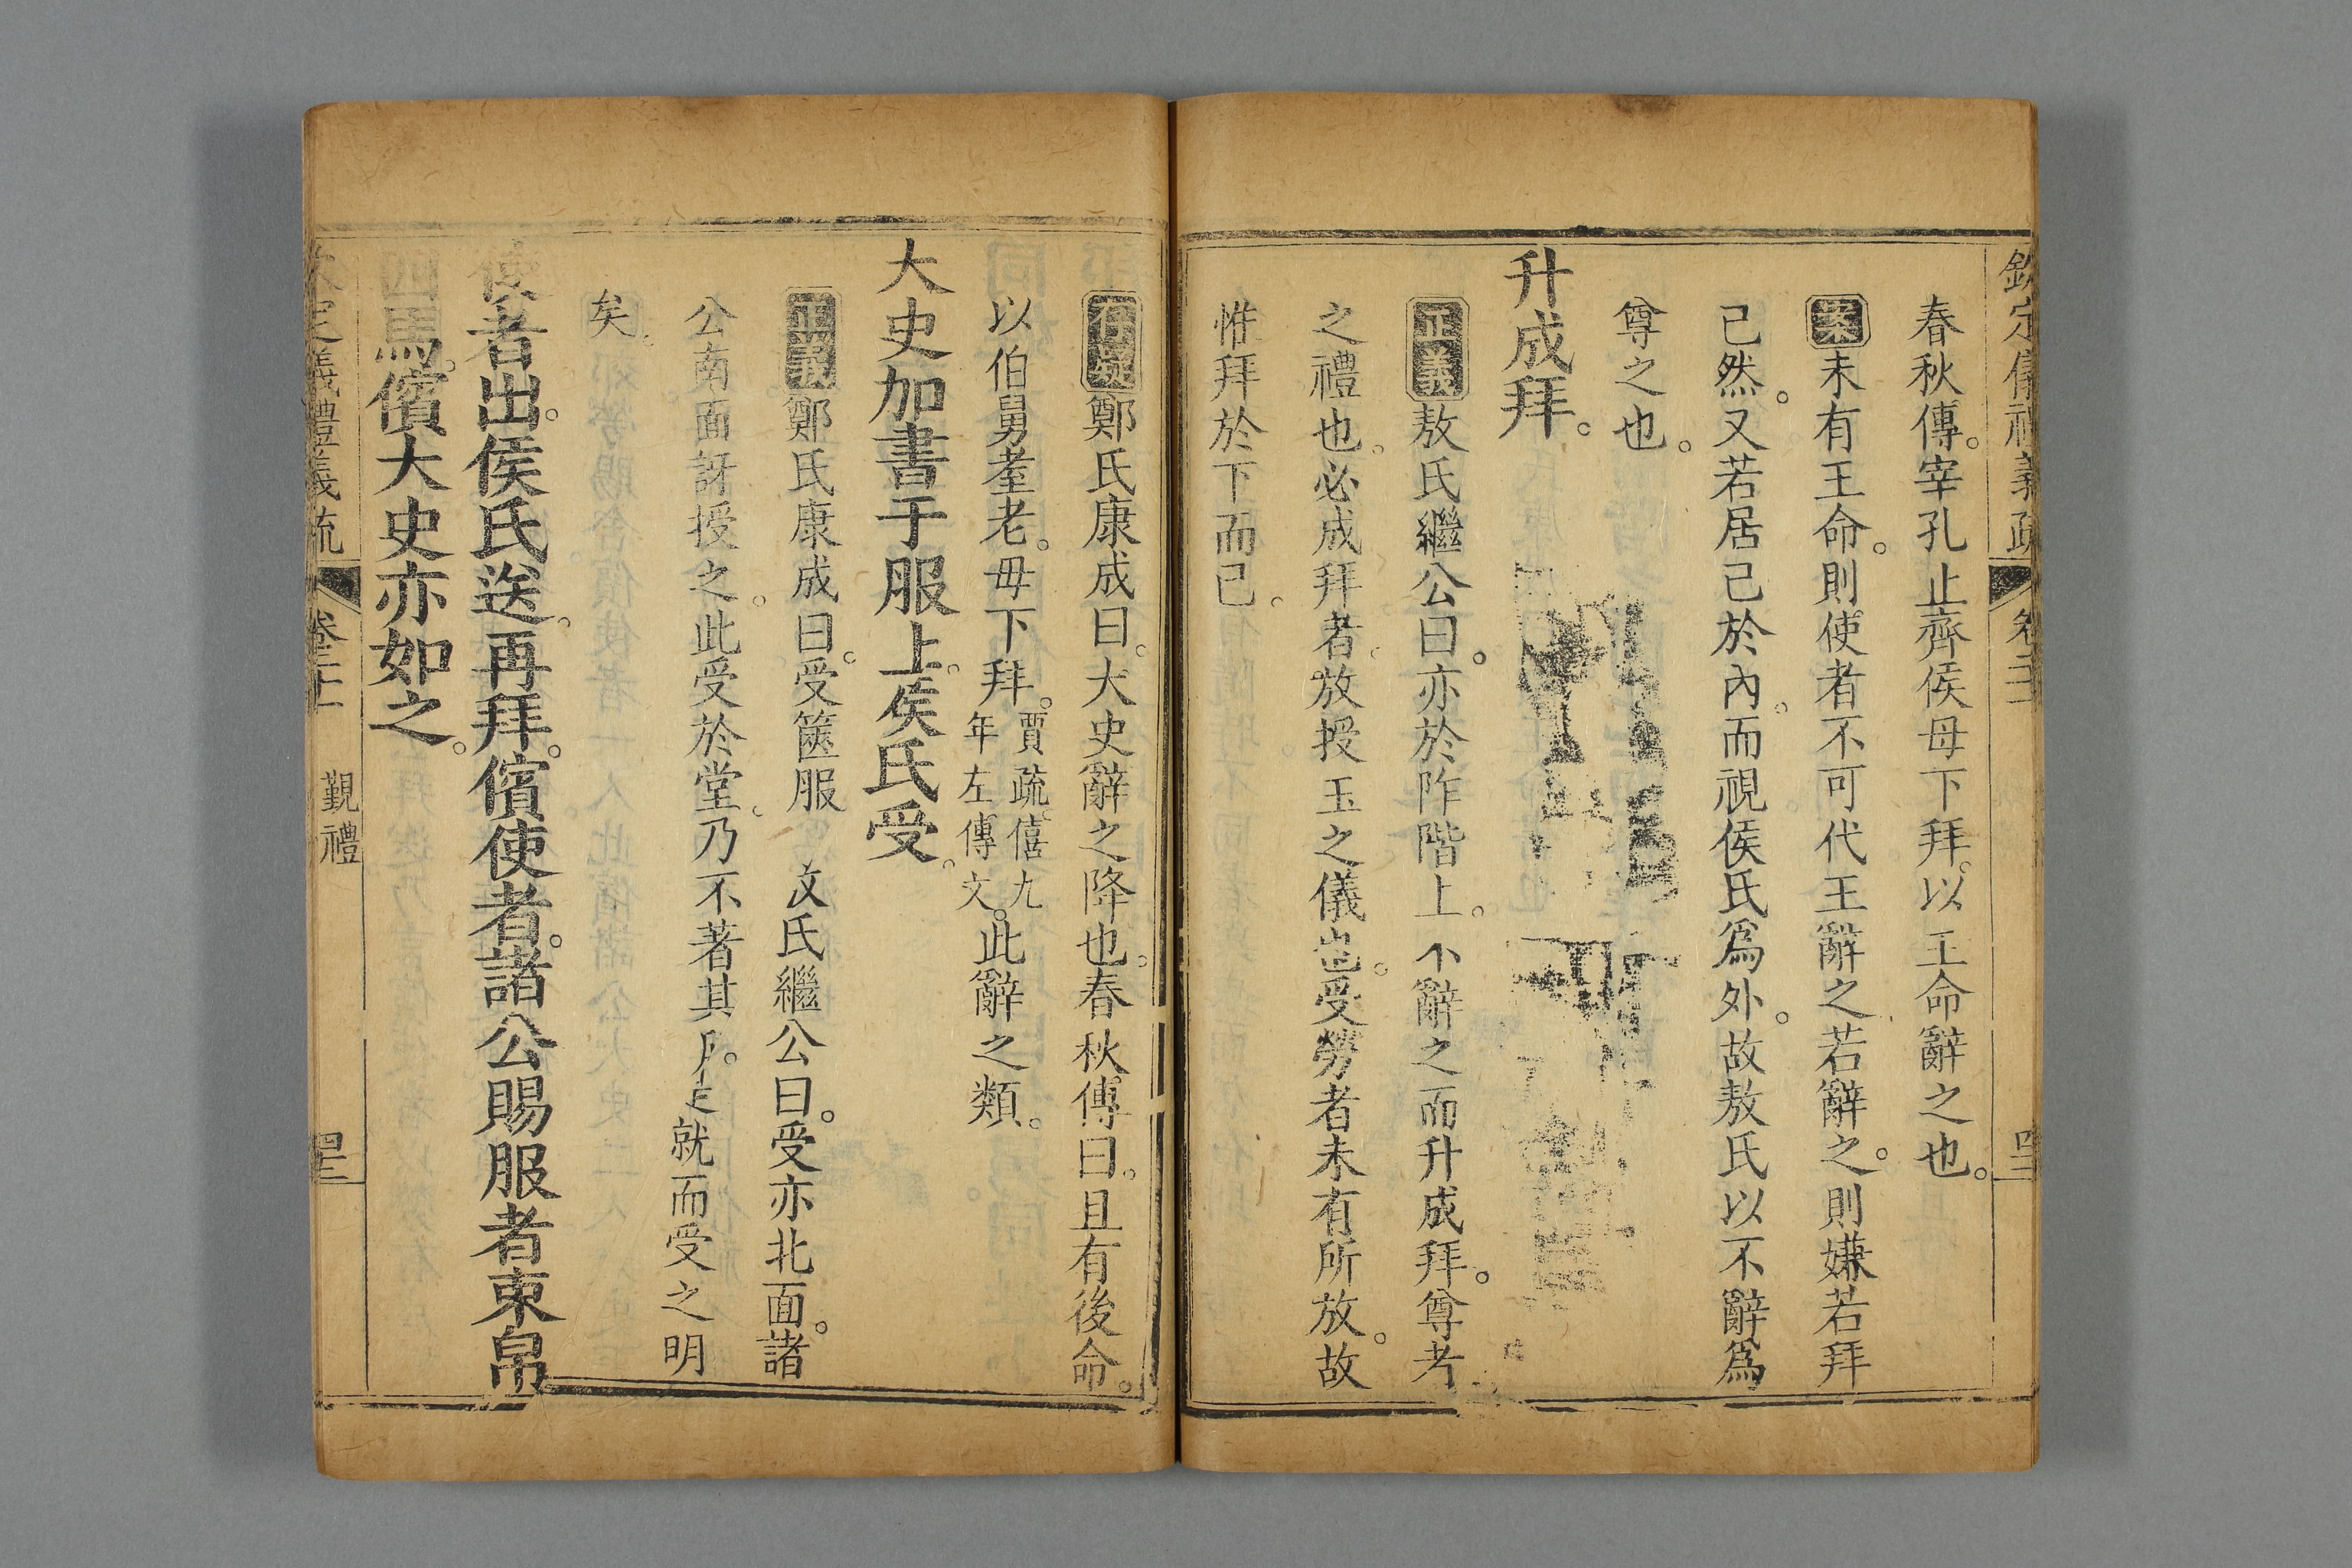 欽定儀禮義疏 卷二十一 四三
春秋傳。宰孔止齊侯毋下拜。以王命辭之也。
案未有王命。則使者不可代王辭之。若辭之。則嫌若拜
已然。又若居己於內。而視侯氏爲外。故敖氏以不辭爲
尊之也。
升成拜。
正義敖氏繼公曰。亦於阼階上。不辭之而升成拜。尊者
之禮也。必成拜者。放授玉之儀也。受勞者未有所放。故
惟拜於下而已。
存疑鄭氏康成曰。大史辭之降也。春秋傳曰。且有後命。
以伯舅耋老。毋下拜。賈疏。僖九年左傳文。此辭之類。
大史加書于服上。侯氏受。
正義鄭氏康成曰。受篋服 敖氏繼公曰。受亦北面。諸
公南面訝授之。此受於堂。乃不著其所。是就而受之明
矣。
使者出。侯氏送。再拜。儐使者。諸公賜服者。束帛
四馬。儐大史亦如之。
欽定儀禮義疏 卷二十一 覲禮 四三